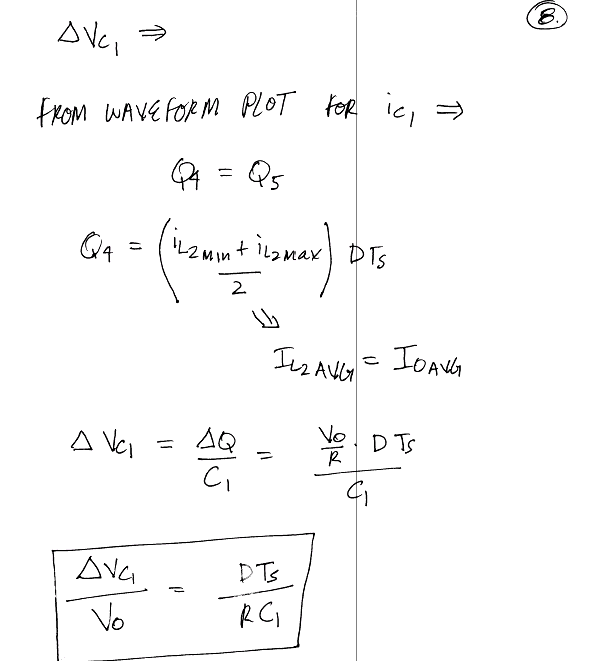 8.
ΔVC1 ⇒
FROM WAVEFORM PLOT FOR iC1 ⇒
Q4 = Q5
Q4 = (iL2MIN + iL2MAX / 2) DTs
⇘
IL2AVG = IOAVG
ΔVC1 = ΔQ / C1 = Vo/R · DTs / C1
ΔVC1 / Vo = DTs / RC1